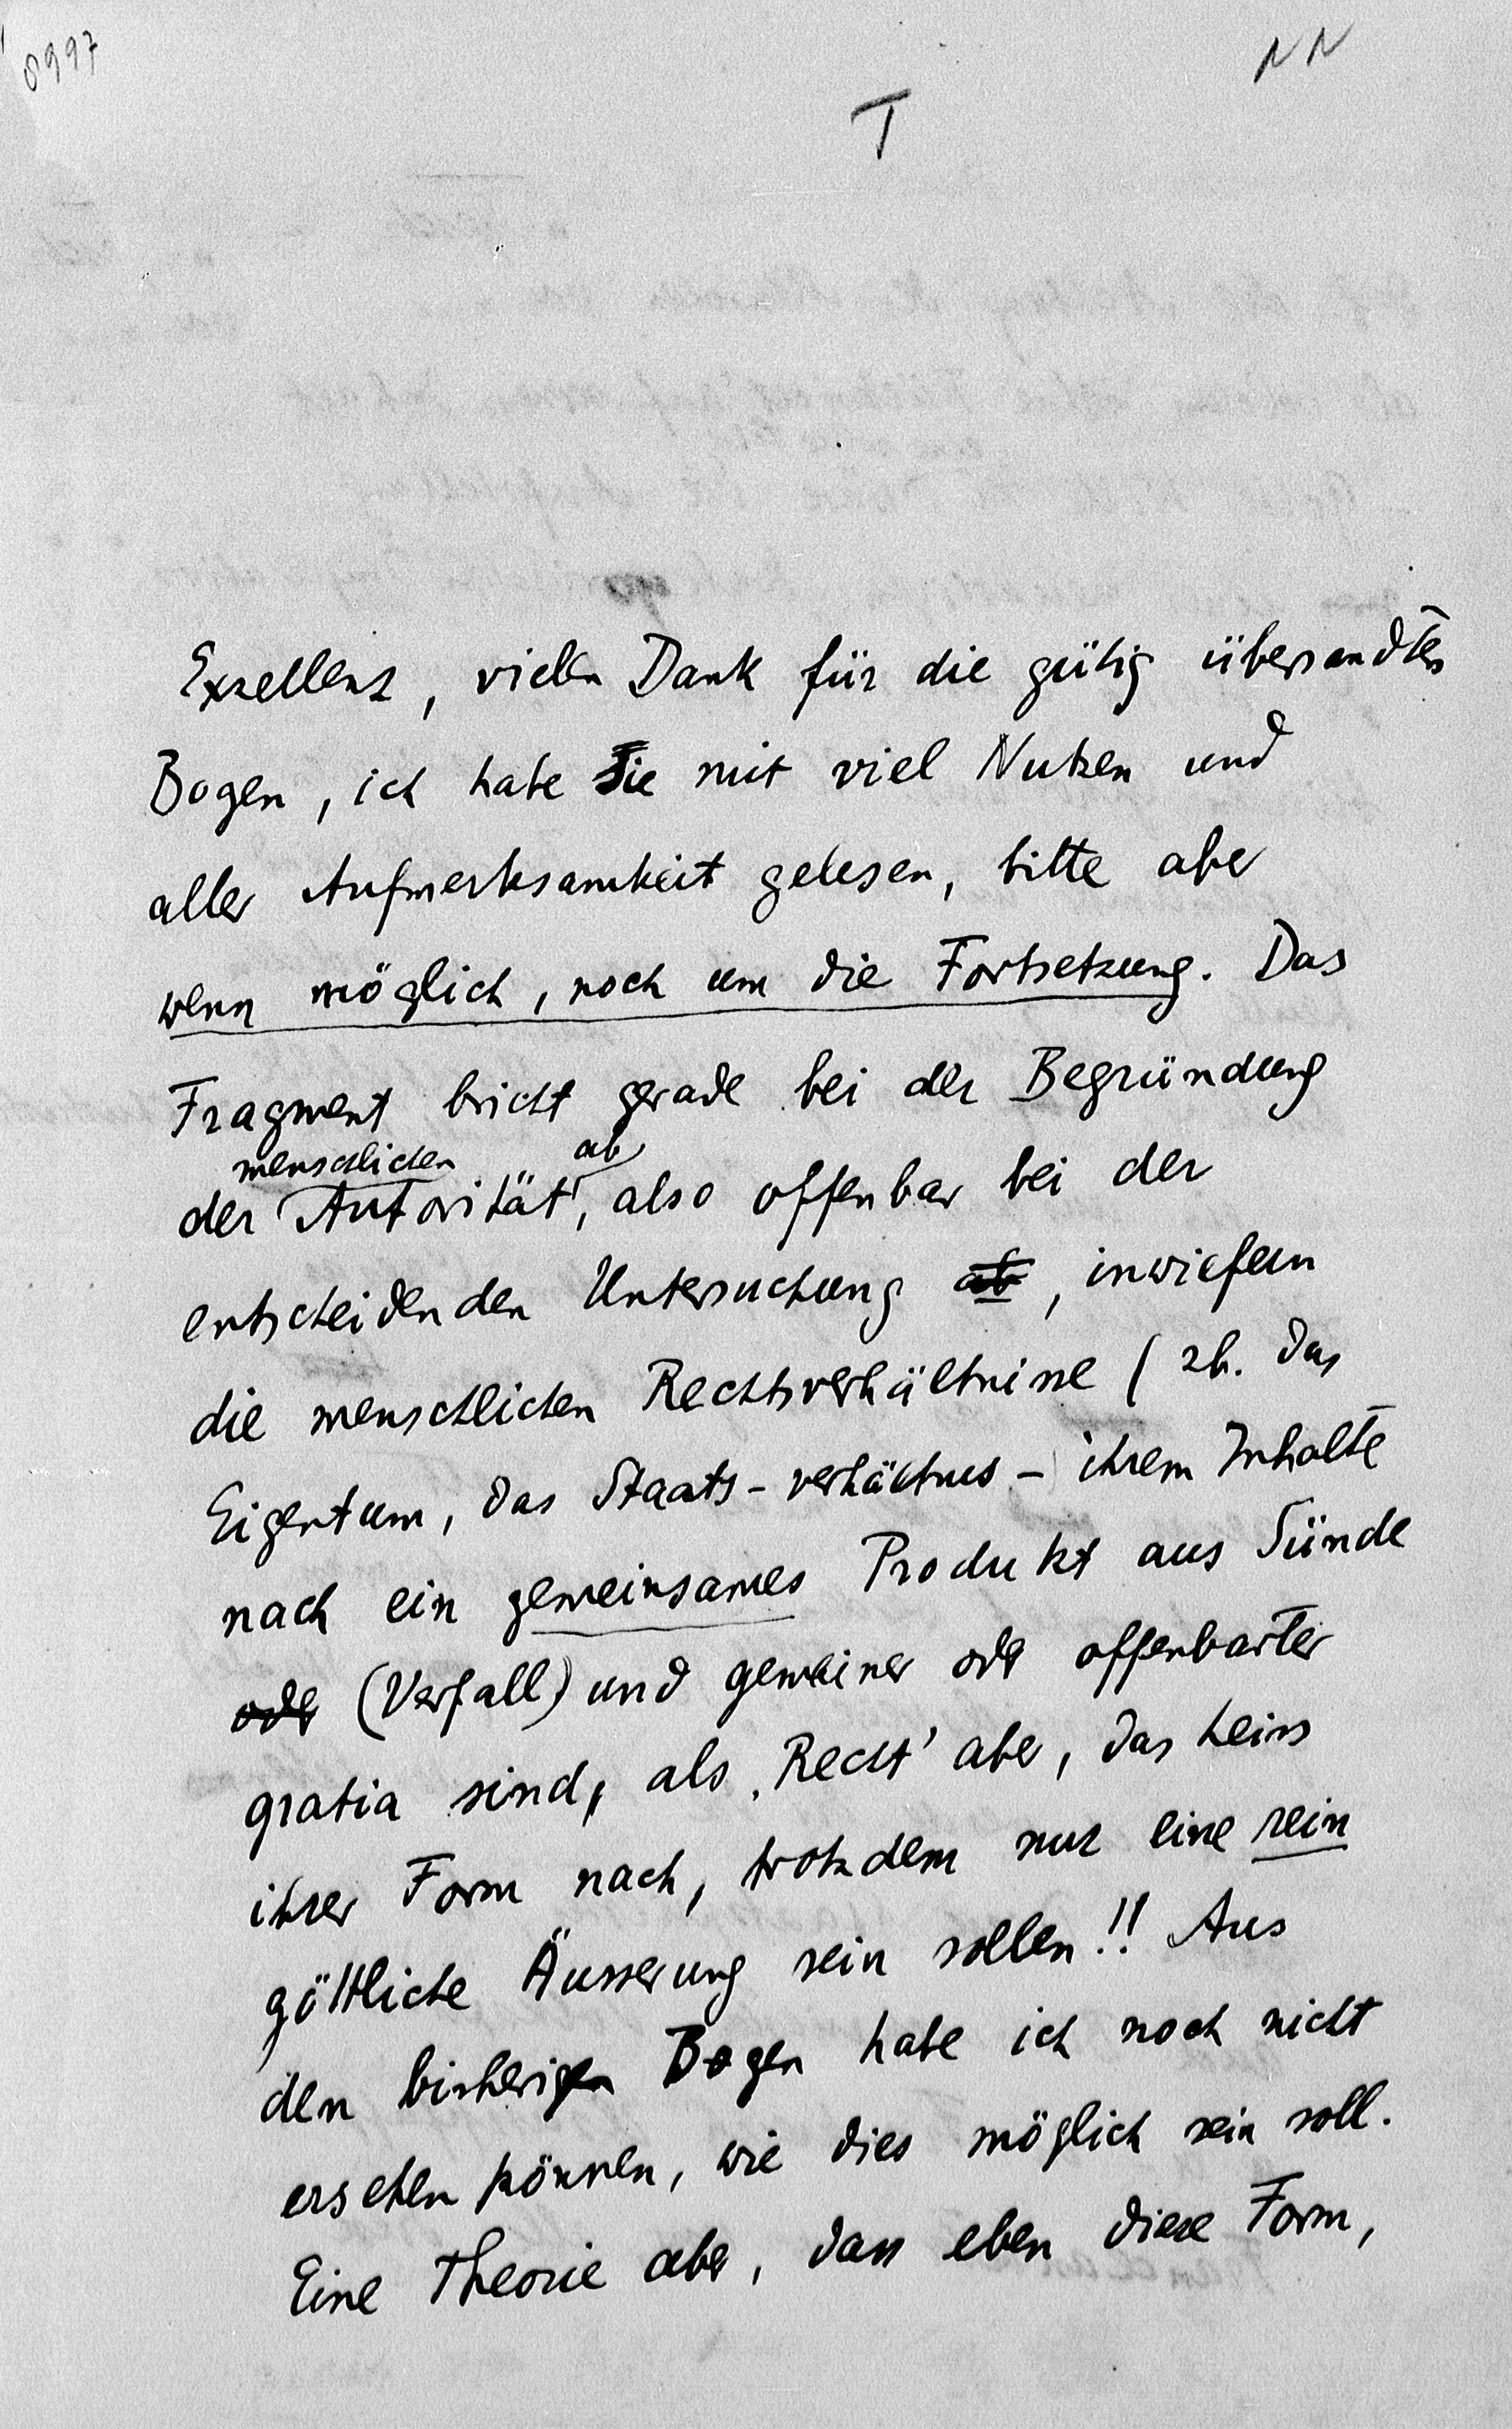 0997
NN
T
Exzellenz, vielen Dank für die gütig übersandten
Bogen, ich habe sie mit viel Nutzen und
aller Aufmerksamkeit gelesen, bitte aber
wenn möglich, noch um die Fortsetzung. Das
Fragment bricht gerade bei der Begründung
menschlichen ab
der Autorität, also offenbar bei der
entscheidenden Untersuchung ab, inwiefern
die menschlichen Rechtsverhältnisse (zb. das
Eigentum, das Staats-verhältnis - ihrem Inhalte
nach ein gemeinsames Produkt aus Sünde
oder (Verfall) und gemeiner oder offenbarter
gratia sind, als ‚Recht' aber, das heiss
ihrer Form nach, trotzdem nur eine rein
göttliche Äusserung sein sollen!! Aus
den bisherigen Bogen habe ich noch nicht
ersehen können, wie dies möglich sein soll.
Eine Theorie aber, dass eben diese Form,